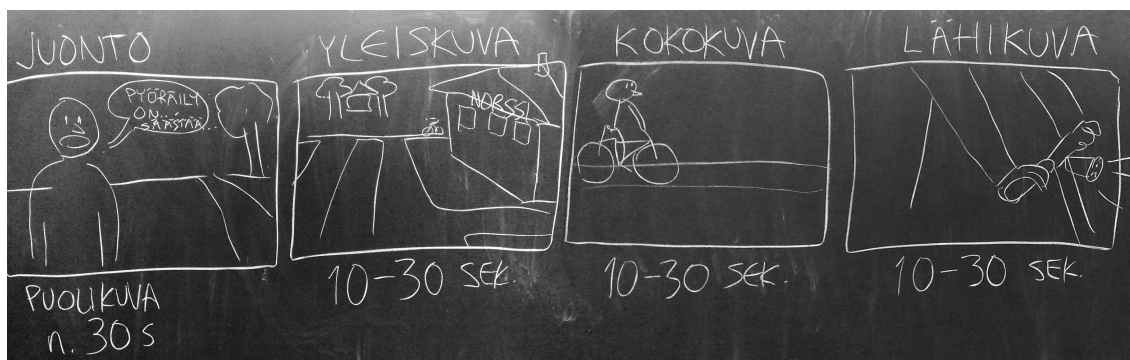 JUONTO
PYÖRÄILY
ON...
SÄÄSTÄÄ...
PUOLIKUVA
n. 30 s
YLEISKUVA
NORSSI
10-30 SEK.
KOKOKUVA
10-30 SEK.
LÄHIKUVA
10-30 SEK.